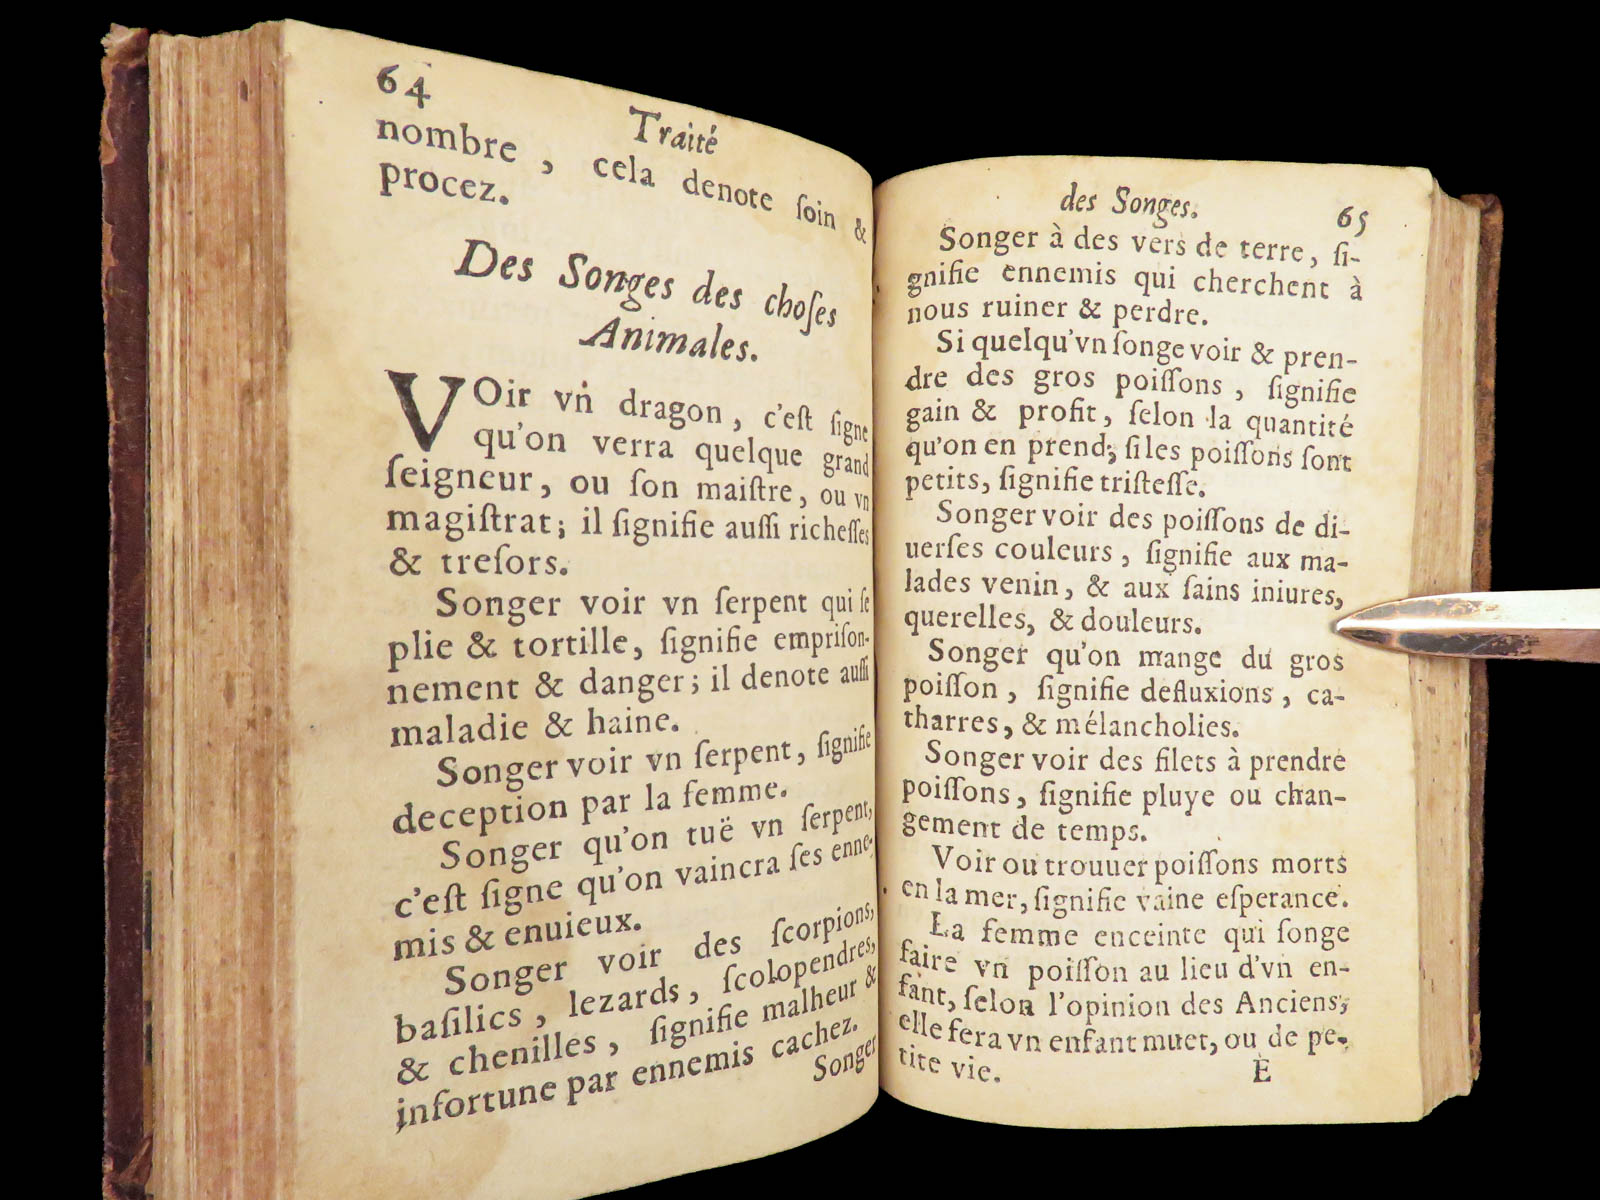 64
Traité
nombre , cela denote ſoin &
procez.
Des Songes des choſes
Animales.
VOir vn dragon, c'eſt ſigne
qu'on verra quelque grand
ſeigneur, ou ſon maiſtre, ou vn
magiſtrat; il ſignifie auſſi richeſſes
& treſors.
Songer voir vn ſerpent qui ſe
plie & tortille, ſignifie empriſon-
nement & danger; il denote auſſi
maladie & haine.
Songer voir vn ſerpent, ſignifie
deception par la femme.
Songer qu'on tuë vn ſerpent,
c'eſt ſigne qu'on vaincra ſes enne-
mis & enuieux.
Songer voir des ſcorpions,
baſilics, lezards, ſcolopendres,
& chenilles, ſignifie malheur &
infortune par ennemis cachez.
Songer
des Songes.
65
Songer à des vers de terre, ſi-
gnifie ennemis qui cherchent à
nous ruiner & perdre.
Si quelqu'vn ſonge voir & pren-
dre des gros poiſſons, ſignifie
gain & profit, ſelon la quantité
qu'on en prend; ſi les poiſſons ſont
petits, ſignifie triſteſſe.
Songer voir des poiſſons de di-
uerſes couleurs, ſignifie aux ma-
lades venin, & aux ſains iniures,
querelles, & douleurs.
Songer qu'on mange du gros
poiſſon, ſignifie defluxions, ca-
tharres, & mélancholies.
Songer voir des filets à prendre
poiſſons, ſignifie pluye ou chan-
gement de temps.
Voir ou trouuer poiſſons morts
en la mer, ſignifie vaine eſperance.
La femme enceinte qui ſonge
faire vn poiſſon au lieu d'vn en-
fant, ſelon l'opinion des Anciens,
elle fera vn enfant muet, ou de pe-
tite vie.
E